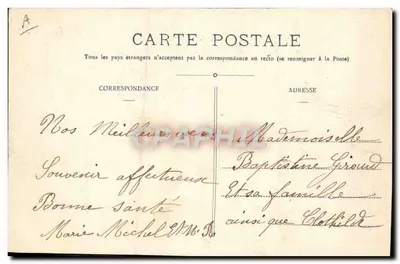 A
CARTE POSTALE
Tous les pays étrangers n'acceptent pas la correspondance au recto (se renseigner à la Poste)
CORRESPONDANCE
Nos Meilleurs
Souvenir affectueux
Bonne santé
Marie Michel Et M.
ADRESSE
Mademoiselle
Baptistine Giraud
Et sa famille
ainsi que Clothilde